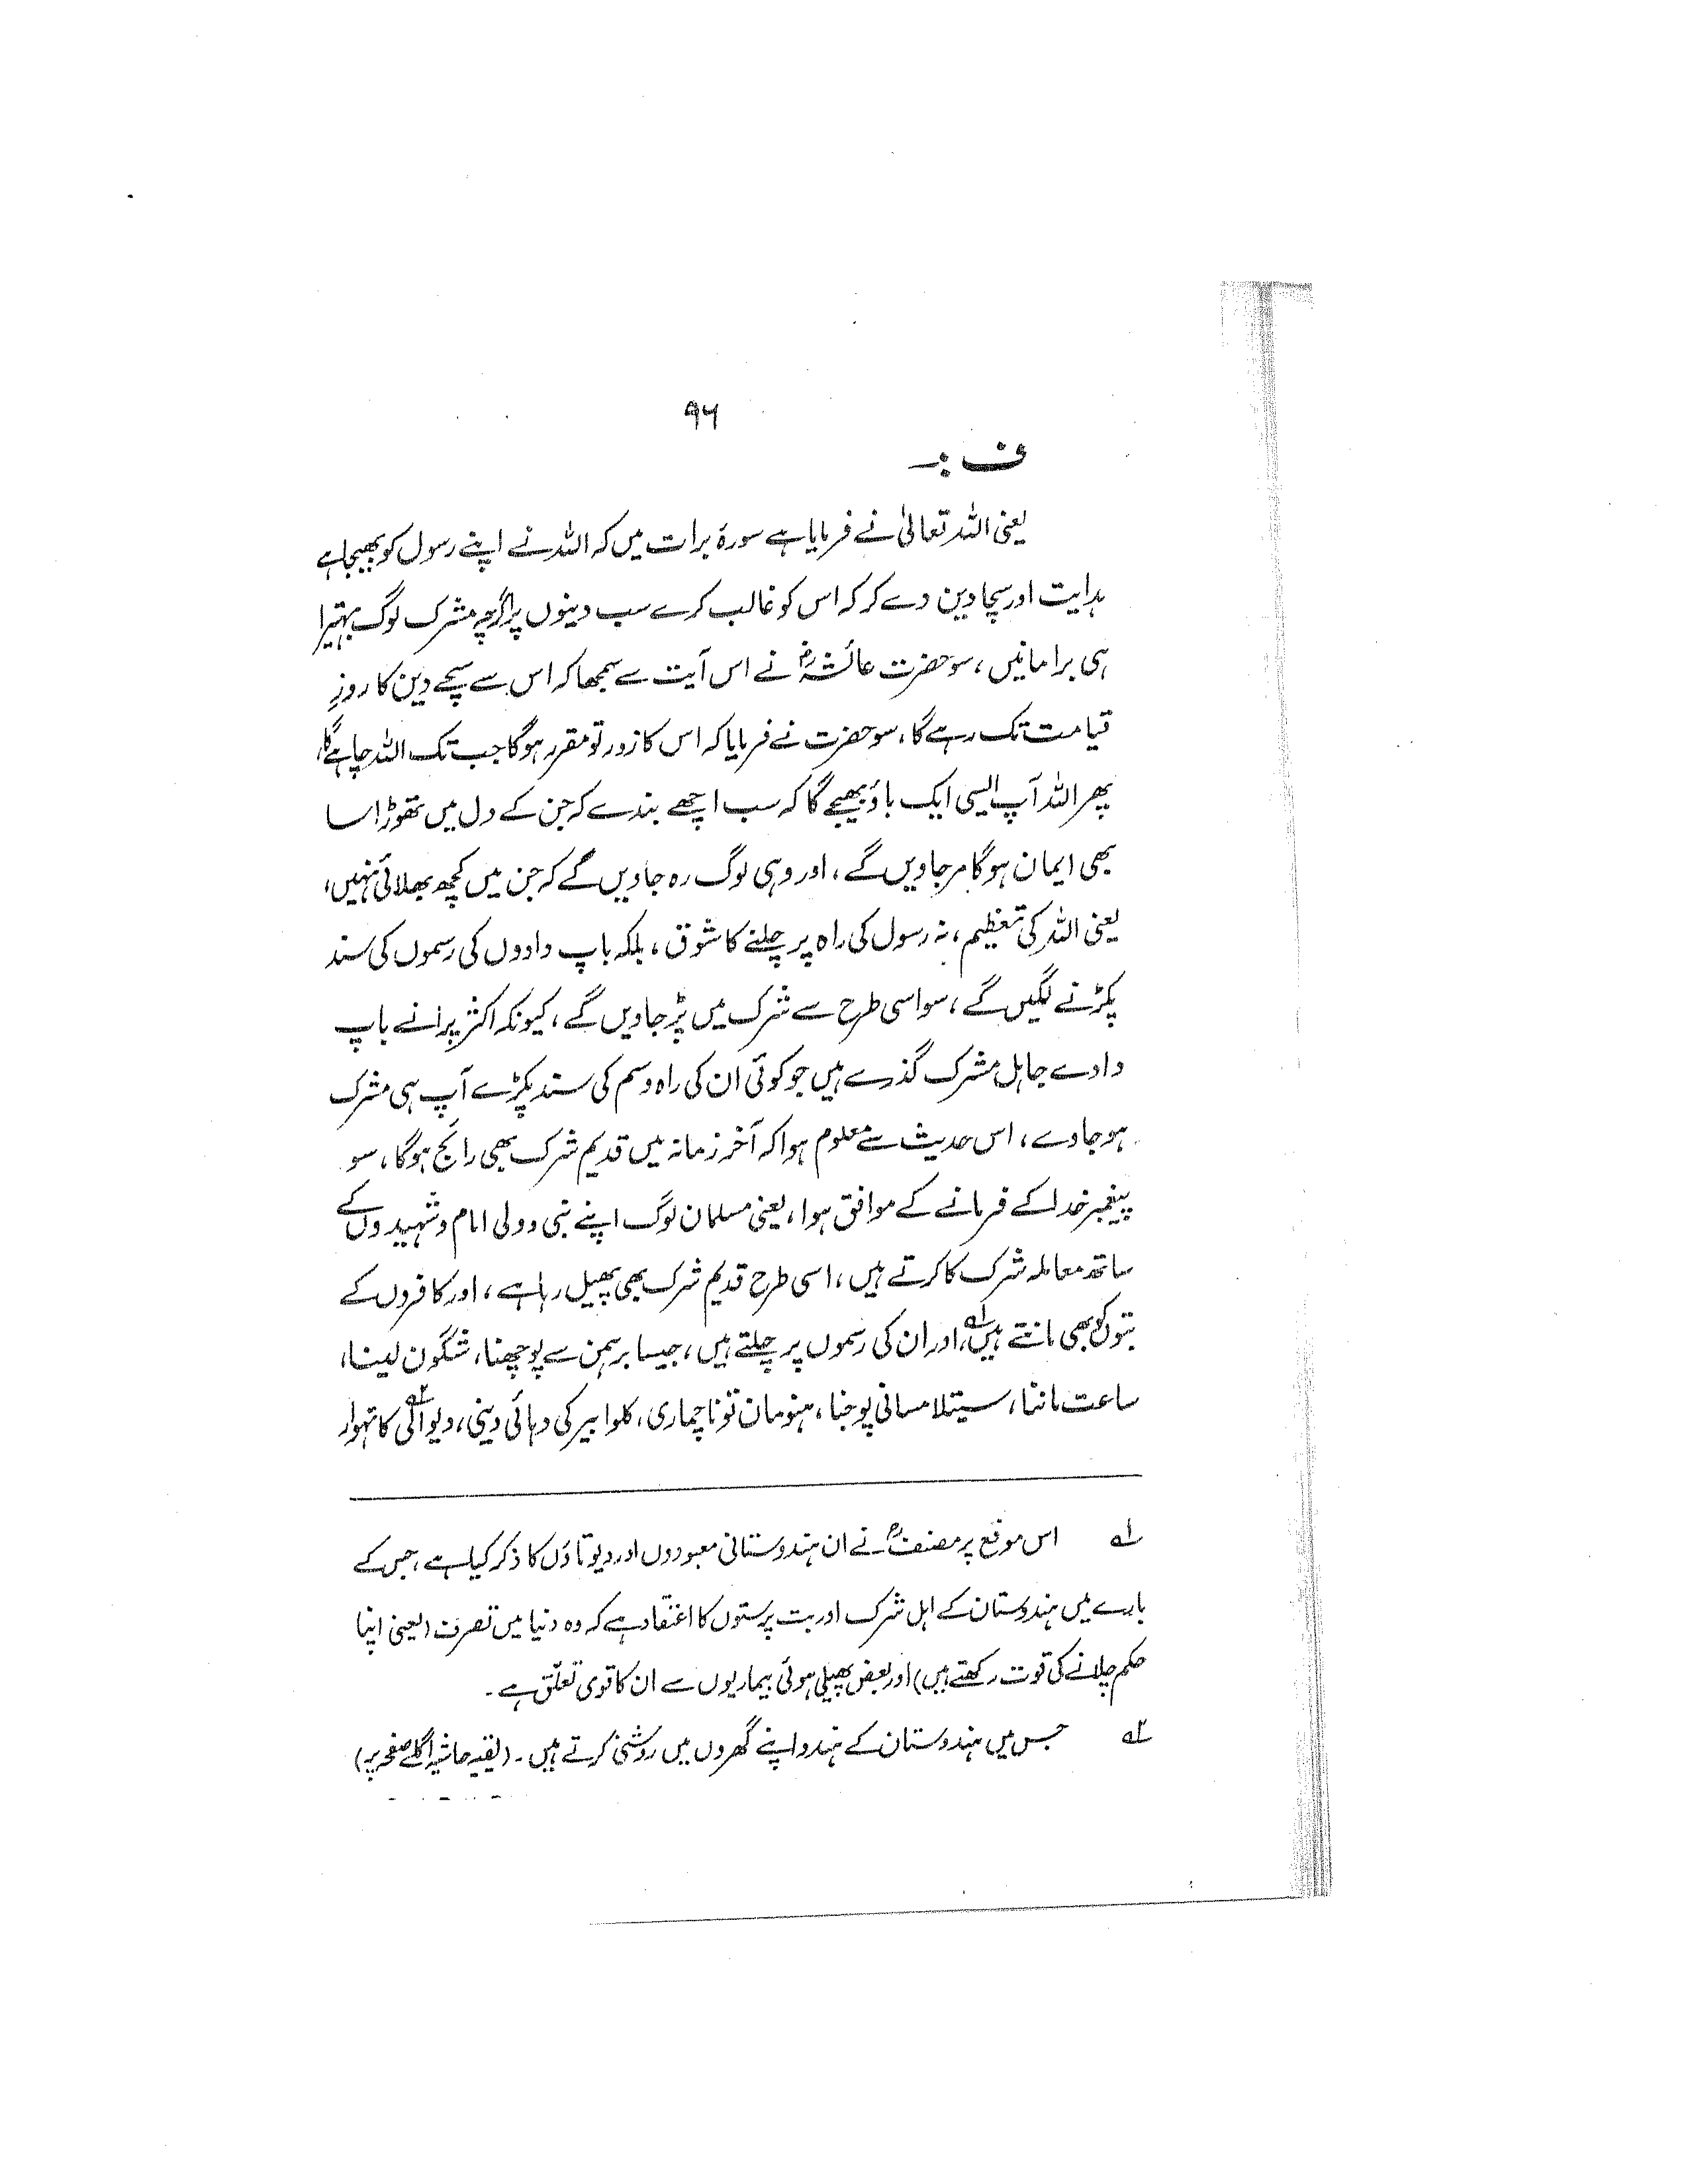 ۹۶
ف :-
یعنی اللہ تعالیٰ نے فرمایا ہے سورۂ برات میں کہ اللہ نے اپنے رسول کو بھیجا ہے
ہدایت اور سچا دین دے کر کہ اس کو غالب کرے سب دینوں پر اگرچہ مشرک لوگ بہتیرا
ہی برا مانیں، سو حضرت عائشہؓ نے اس آیت سے سمجھا کہ اس سے سچے دین کا روزِ
قیامت تک رہے گا، سو حضرت نے فرمایا کہ اس کا زور تو مقرر ہوگا جب تک اللہ چاہے گا،
پھر اللہ آپ ایسی ایک باؤ بھیجے گا کہ سب اچھے بندے کہ جن کے دل میں تھوڑا سا
بھی ایمان ہوگا مر جاویں گے، اور وہی لوگ رہ جاویں گے کہ جن میں کچھ بھلائی نہیں،
یعنی اللہ کی تعظیم، نہ رسول کی راہ پر چلنے کا شوق، بلکہ باپ دادوں کی رسموں کی سند
پکڑنے لگیں گے، سو اسی طرح سے شرک میں پڑ جاویں گے، کیونکہ اکثر پرانے باپ
دادے جاہل مشرک گذرے ہیں جو کوئی ان کی راہ و رسم کی سند پکڑے آپ ہی مشرک
ہو جاوے، اس حدیث سے معلوم ہوا کہ آخر زمانہ میں قدیم شرک بھی رائج ہوگا، سو
پیغمبر خدا کے فرمانے کے موافق ہوا، یعنی مسلمان لوگ اپنے نبی و ولی امام و شہیدوں کے
ساتھ معاملہ شرک کا کرتے ہیں، اسی طرح قدیم شرک بھی پھیل رہا ہے، اور کافروں کے
بتوں کو بھی مانتے ہیں؂۱، اور ان کی رسموں پر چلتے ہیں، جیسا برہمن سے پوچھنا، شگون لینا،
ساعت ماننا، سیتلا مسانی پوجنا، ہنومان نونا چماری، کلوا بیر کی دہائی دینی، دیوالی؂۲ کا تہوار
؂۱ اس موقع پر مصنفؒ نے ان ہندوستانی معبودوں اور دیوتاؤں کا ذکر کیا ہے، جس کے
بارے میں ہندوستان کے اہل شرک اور بت پرستوں کا اعتقاد ہے کہ وہ دنیا میں تصرف (یعنی اپنا
حکم چلانے کی قوت رکھتے ہیں) اور بعض پھیلی ہوئی بیماریوں سے ان کا قوی تعلّق ہے۔
؂۲ جس میں ہندوستان کے ہندو اپنے گھروں میں روشنی کرتے ہیں۔ (بقیہ حاشیہ اگلے صفحہ پر)